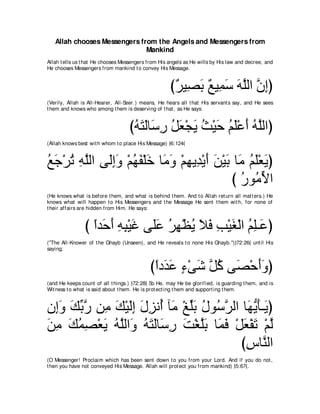 Allah chooses Messengers from the Angels and Messengers from
Mankind
Allah tells us that He chooses Messengers from His angels as He wills by His law and decree, and
He chooses Messengers from mankind to convey His Message.
(إِنَّ اللَّهَ سَمِيعٌ بَصِيرٌ)
(Verily, Allah is All-Hearer, All-Seer.) means, He hears all that His servants say, and He sees
them and knows who among them is deserving of that, as He says:
(اللَّهُ أَعْلَمُ حَيْثُ يَجْعَلُ رِسَالَتَهُ)
(Allah knows best with whom to place His Message) [6:124]
(يَعْلَمُ مَا بَيْنَ أَيْدِيهِمْ وَمَا خَلْفَهُمْ وَإِلَى اللَّهِ تُرْجَعُ
الاٍّمُورُ )
(He knows what is before them, and what is behind them. And to Allah return all matters.) He
knows what will happen to His Messengers and the Message He sent them with, for none of
their affairs are hidden from Him. He says:
(عَـلِمُ الْغَيْبِ فَلاَ يُظْهِرُ عَلَى غَيْبِهِ أَحَداً )
("The All-Knower of the Ghayb (Unseen), and He reveals to none His Ghayb.")(72:26) until His
saying;
(وَأَحْصَى كُلَّ شَىْءٍ عَدَداً)
(and He keeps count of all things.) [72:28] So He, may He be glorified, is guarding them, and is
Witness to what is said about them. He is protecting them and supporting them.
(يَـأَيُّهَا الرَّسُولُ بَلِّغْ مَآ أُنزِلَ إِلَيْكَ مِن رَّبِّكَ وَإِن
لَّمْ تَفْعَلْ فَمَا بَلَّغْتَ رِسَالَتَهُ وَاللَّهُ يَعْصِمُكَ مِنَ
النَّاسِ)
(O Messenger! Proclaim which has been sent down to you from your Lord. And if you do not,
then you have not conveyed His Message. Allah will protect you from mankind) (5:67).